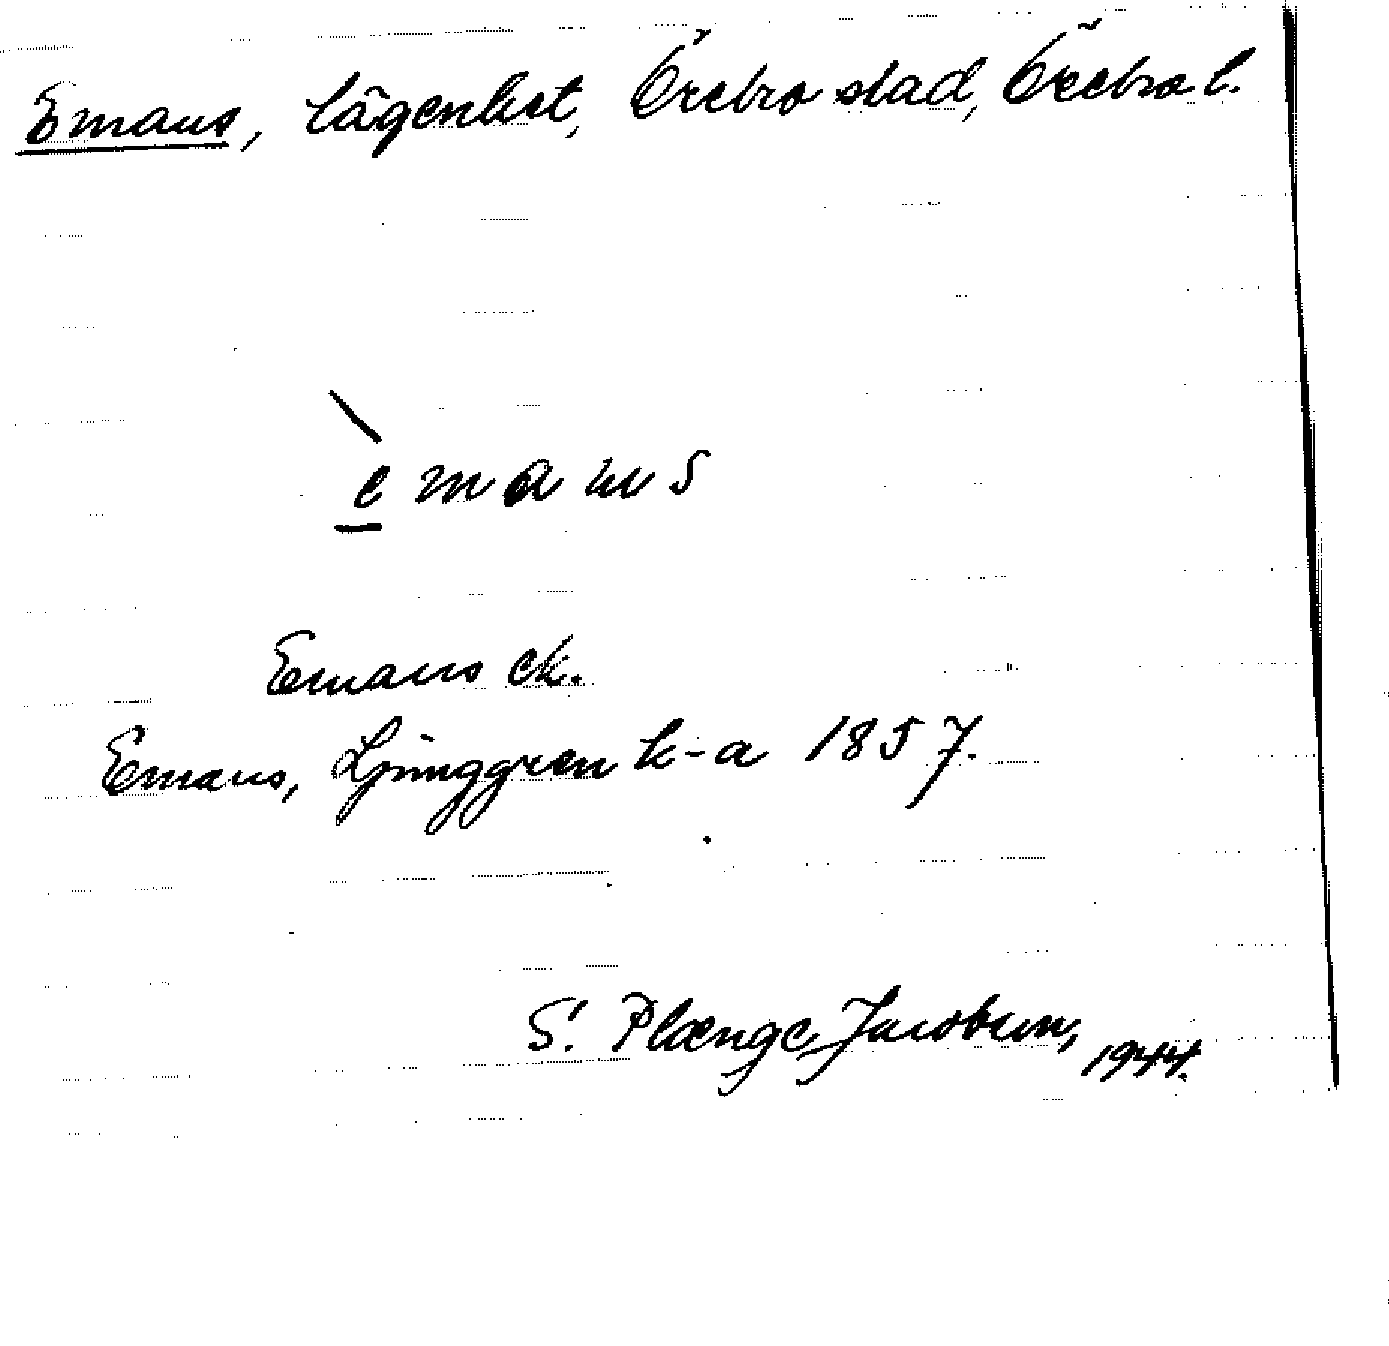 Emaus, lägenhet, Örebro stad, Örebro l.
e m a u s
Emaus ek.
Emaus, Ljunggren k-a 1857.
S. Plænge Jacobson, 1944.